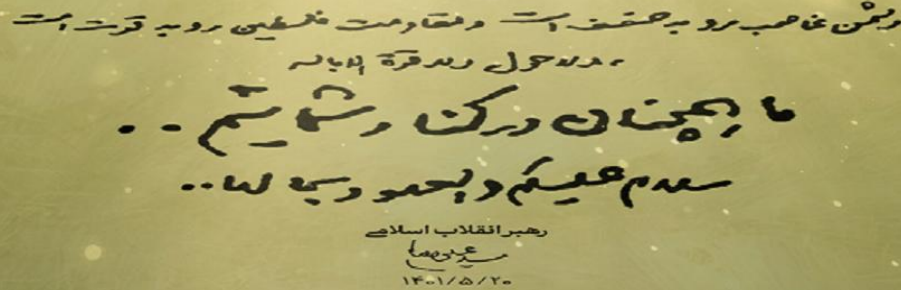 دشمن غاصب رو به ضعف است و مقاومت فلسطین رو به قوت است
، ولا حول ولا قوة الا بالله
ما همچنان در کنار شمائیم . .
سلام علیکم والعهد و بحالها..
رهبر انقلاب اسلامی
۱۴۰۱/۵/۲۰